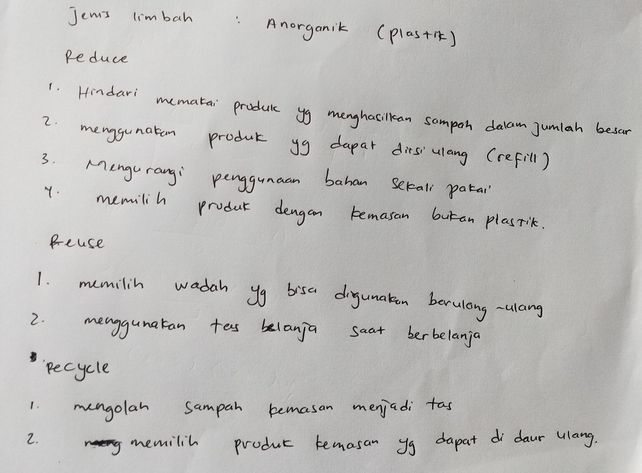 Jenis limbah : Anorganik (plastik)
Reduce
1. Hindari memakai produk yg menghasilkan sampah dalam jumlah besar
2. menggunakan produk yg dapat diisi ulang (refill)
3. Mengurangi penggunaan bahan sekali pakai
4. memilih produk dengan kemasan bukan plastik.
Reuse
1. memilih wadah yg bisa digunakan berulang-ulang
2. menggunakan tas belanja saat berbelanja
Recycle
1. mengolah sampah kemasan menjadi tas
2. memilih produk kemasan yg dapat di daur ulang.